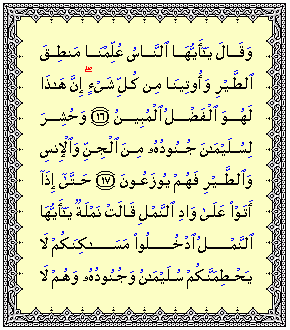 وَقَالَ يَـٰٓأَيُّهَا ٱلنَّاسُ عُلِّمْنَا مَنطِقَ
ٱلطَّيْرِ وَأُوتِينَا مِن كُلِّ شَىْءٍ ۖ إِنَّ هَـٰذَا
لَهُوَ ٱلْفَضْلُ ٱلْمُبِينُ ۝١٦ وَحُشِرَ
لِسُلَيْمَـٰنَ جُنُودُهُۥ مِنَ ٱلْجِنِّ وَٱلْإِنسِ
وَٱلطَّيْرِ فَهُمْ يُوزَعُونَ ۝١٧ حَتَّىٰٓ إِذَآ
أَتَوْا۟ عَلَىٰ وَادِ ٱلنَّمْلِ قَالَتْ نَمْلَةٌ يَـٰٓأَيُّهَا
ٱلنَّمْلُ ٱدْخُلُوا۟ مَسَـٰكِنَكُمْ لَا
يَحْطِمَنَّكُمْ سُلَيْمَـٰنُ وَجُنُودُهُۥ وَهُمْ لَا